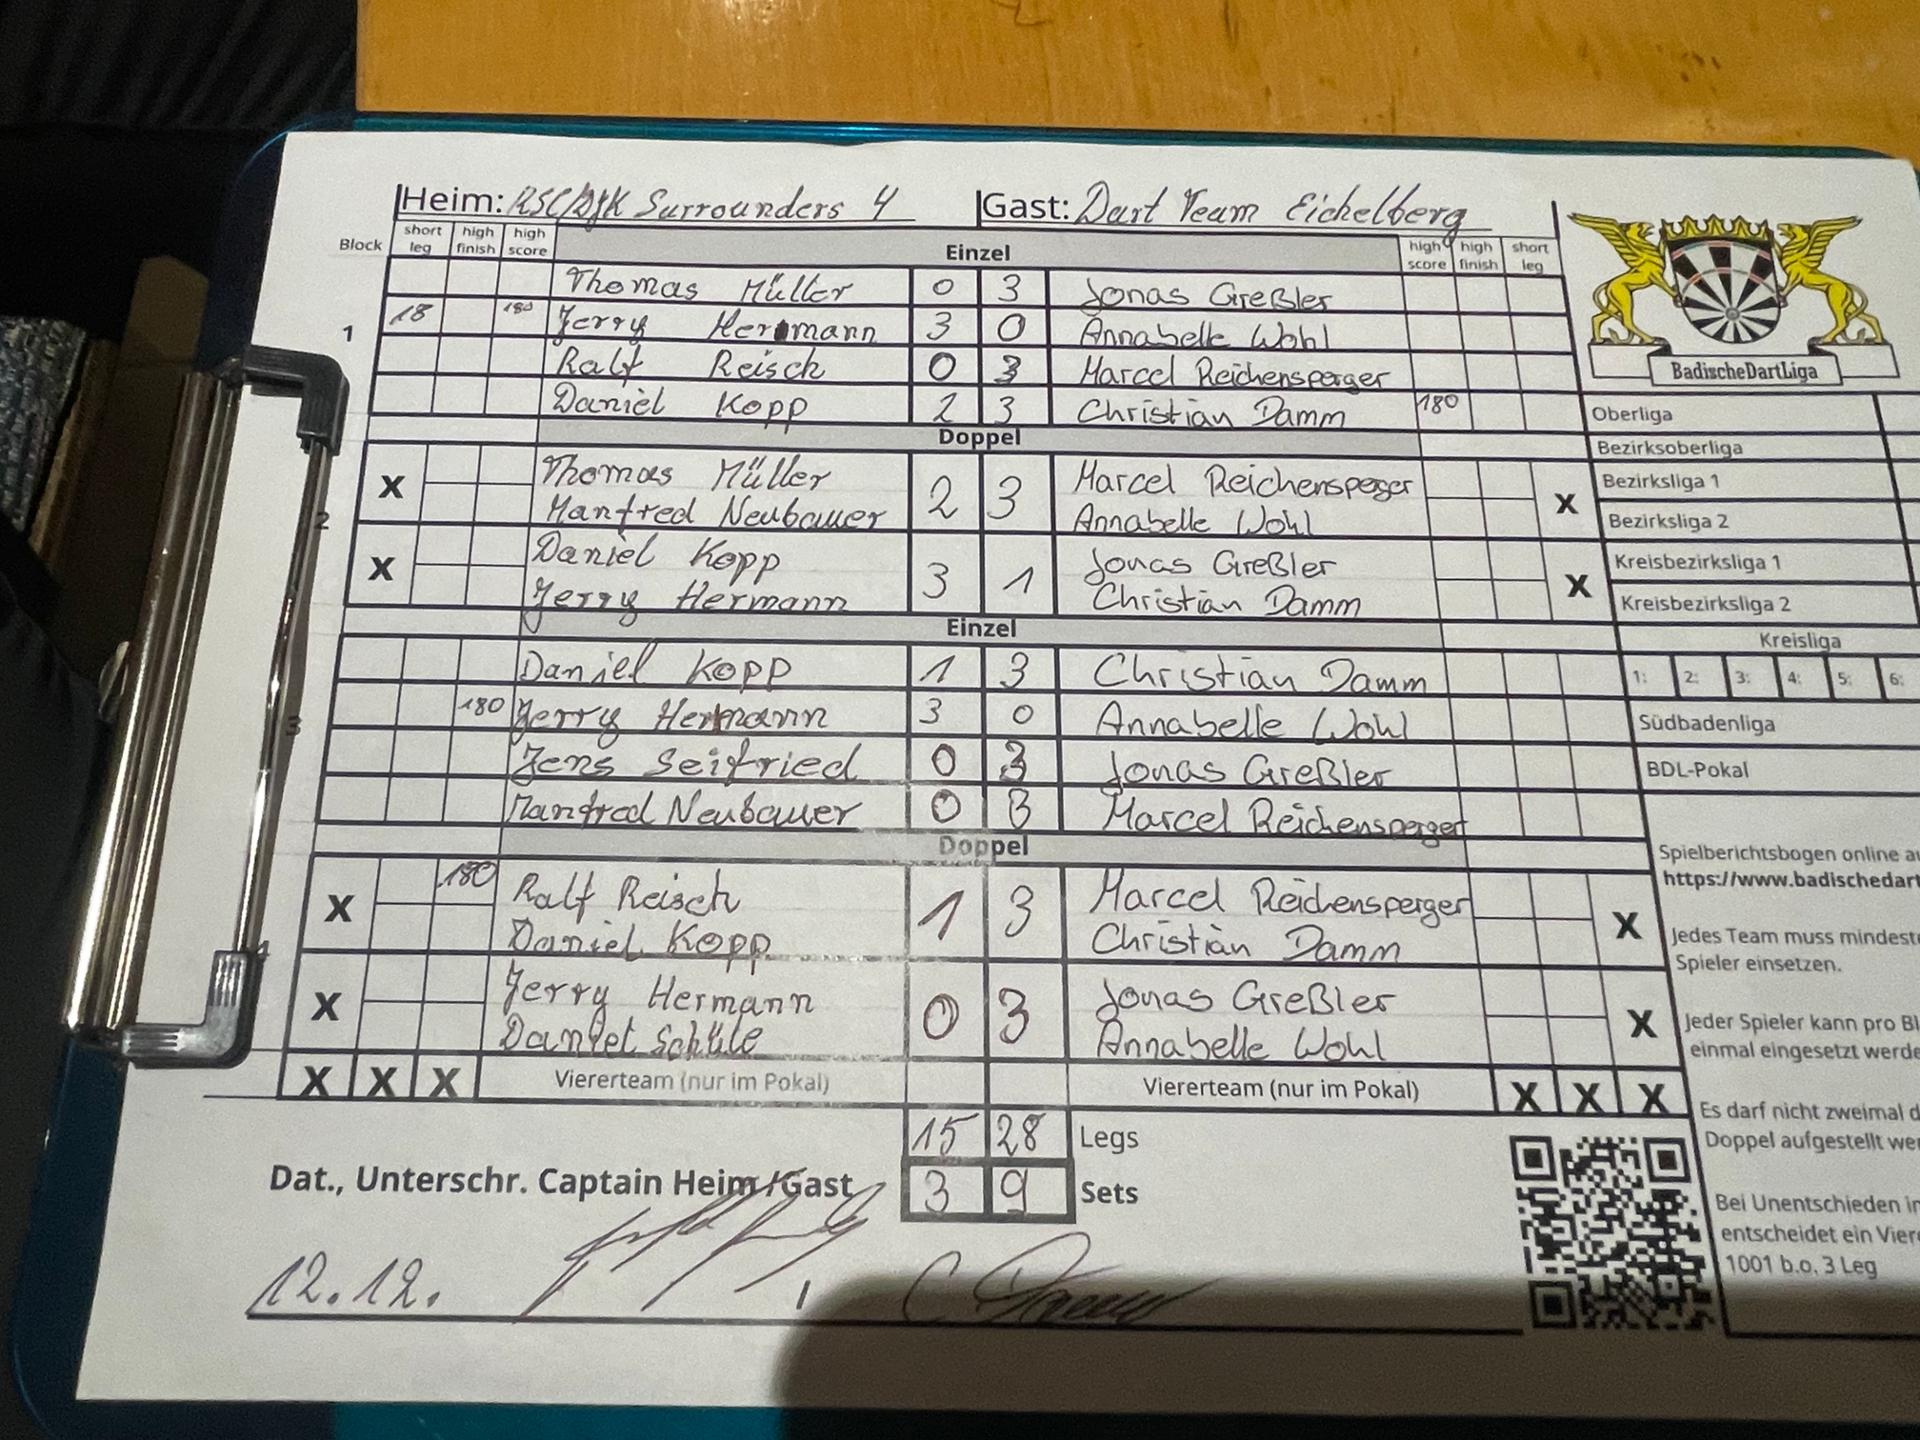 Heim: RSC/DJK Surrounders 4 Gast: Dart Team Eichelberg
Block short leg high finish high score Einzel high score high finish short leg
Thomas Müller 0 3 Jonas Greßler
1 18 180 Jerry Hermann 3 0 Annabelle Wohl
Ralf Reisch 0 3 Marcel Reichensperger
Daniel Kopp 2 3 Christian Damm 180
Doppel
X Thomas Müller 2 3 Marcel Reichensperger X
2 Manfred Neubauer Annabelle Wohl
X Daniel Kopp 3 1 Jonas Greßler X
Jerry Hermann Christian Damm
Einzel
Daniel Kopp 1 3 Christian Damm
3 180 Jerry Hermann 3 0 Annabelle Wohl
Jens Seifried 0 3 Jonas Greßler
Manfred Neubauer 0 3 Marcel Reichensperger
Doppel
X 180 Ralf Reisch 1 3 Marcel Reichensperger X
4 Daniel Kopp Christian Damm
X Jerry Hermann 0 3 Jonas Greßler X
Daniel Schüle Annabelle Wohl
X X X Viererteam (nur im Pokal) Viererteam (nur im Pokal) X X X
15 28 Legs
3 9 Sets
Dat., Unterschr. Captain Heim/Gast
12.12. /
BadischeDartLiga
Oberliga
Bezirksoberliga
Bezirksliga 1
Bezirksliga 2
Kreisbezirksliga 1
Kreisbezirksliga 2
Kreisliga
1: 2: 3: 4: 5: 6:
Südbadenliga
BDL-Pokal
Spielberichtsbogen online
https://www.badischedart
Jedes Team muss
Spieler einsetzen.
Jeder Spieler kann pro
einmal eingesetzt
Es darf nicht zweimal
Doppel aufgestellt
Bei Unentschieden
entscheidet ein
1001 b.o. 3 Leg